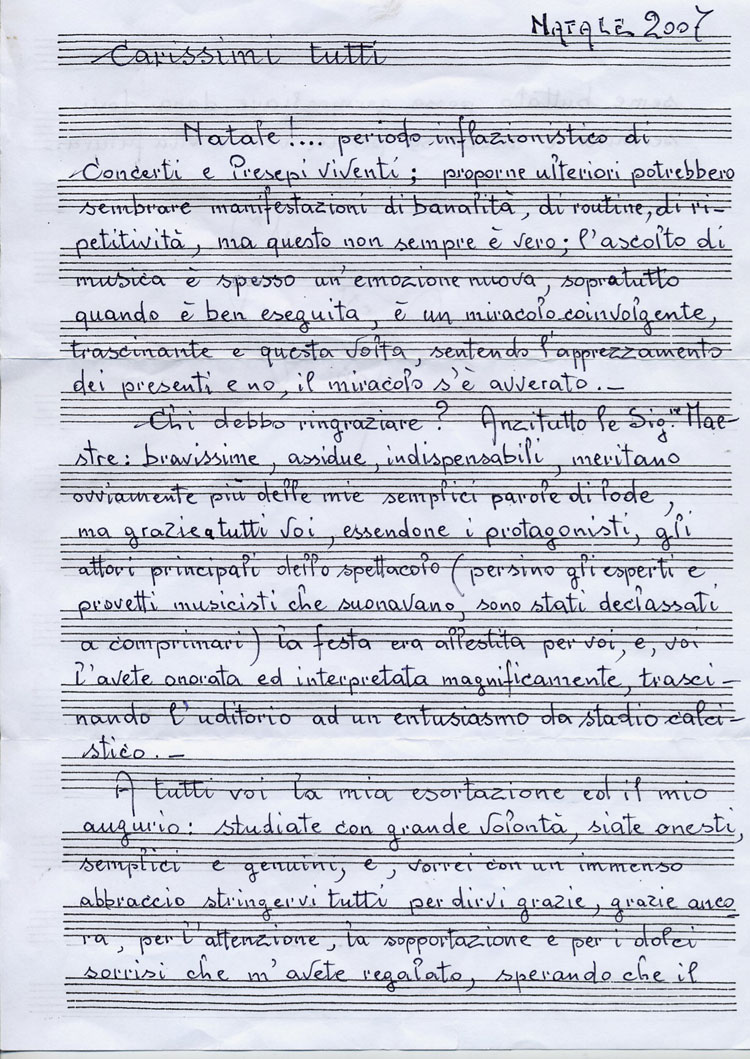 Natale 2007
Carissimi tutti
Natale!... periodo inflazionistico di
Concerti e Presepi viventi; proporne ulteriori potrebbero
sembrare manifestazioni di banalità, di routine, di ri-
petitività, ma questo non sempre è vero; l'ascolto di
musica è spesso un'emozione nuova, sopratutto
quando è ben eseguita, è un miracolo coinvolgente,
trascinante e questa volta, sentendo l'apprezzamento
dei presenti e no, il miracolo s'è avverato.-
Chi debbo ringraziare? Anzitutto le Sig.re Mae-
stre: bravissime, assidue, indispensabili, meritano
ovviamente più delle mie semplici parole di lode,
ma grazie a tutti voi, essendone i protagonisti, gli
attori principali dello spettacolo (persino gli esperti e
provetti musicisti che suonavano, sono stati declassati
a comprimari) la festa era allestita per voi, e, voi
l'avete onorata ed interpretata magnificamente, trasci-
nando l'uditorio ad un entusiasmo da stadio calci-
stico.-
A tutti voi la mia esortazione ed il mio
augurio: studiate con grande volontà, siate onesti,
semplici e genuini, e, vorrei con un immenso
abbraccio stringervi tutti per dirvi grazie, grazie anco
ra, per l'attenzione, la sopportazione e per i dolci
sorrisi che m'avete regalato, sperando che il